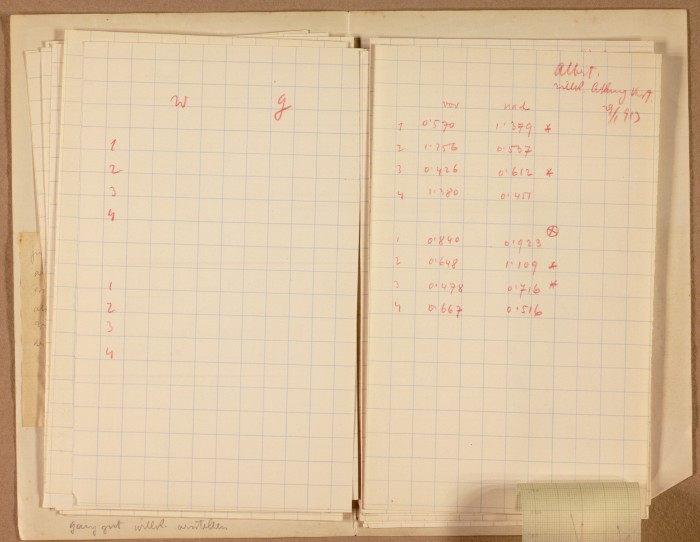 w g
1
2
3
4
1
2
3
4
Albert.
29/1 913
vor nach
1 0.570 1.379 *
2 1.356 0.537
3 0.426 0.612 *
4 1.380 0.451
1 0.840 0.923 ⊗
2 0.648 1.109 *
3 0.478 0.716 *
4 0.667 0.516
ganz gut willk.